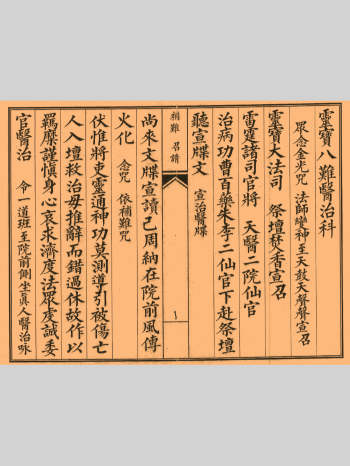 靈寶八難醫治科
眾念金光咒 法師變神至天鼓天聲聲宣召
靈寶大法司 祭壇焚香宣召
雷霆諸司官將 天醫二院仙官
治病功曹百藥朱李二仙官下赴祭壇
聽宣牒文 宣治醫牒
補難 召請
尚來文牒宣讀已周納在院前風傳
火化 念咒 依補難咒
伏惟將吏靈通神功莫測導引被傷亡
人入壇救治毋推辭而錯過休故作以
羈縻謹慎身心哀求濟度法眾虔誠委
官醫治 令一道班至院前側坐眞人醫治咏